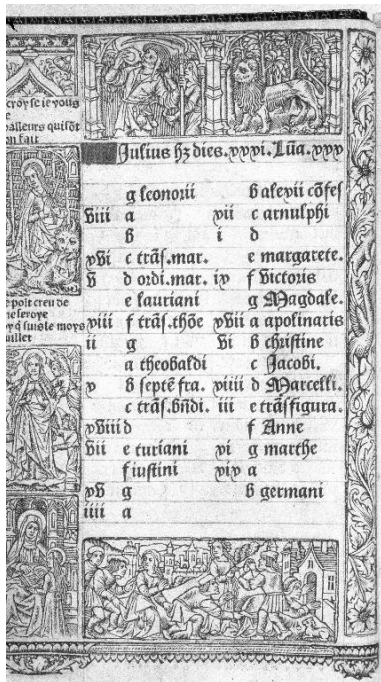 croy se ie vous
e
ailleurs qui sõt
on fait
e poit creu de
ne seroye
y q̃ suis le moys
uillet
Julius hʒ dies.xxxi.Lũa.xxx
g leonorii
viii a
b
xvi c trãs.mar.
v d ordi.mar.
e lauriani
xiii f trãs.thõe
ii g
a theobaldi
x b septẽ fra.
c trãs.bñdi.
xviii d
vii e turiani
f iustini
xv g
iiii a
b alexii cõfes
xii c arnulphi
i d
e margarete.
ix f Victoris
g Magdale.
xvii a apolinaris
vi b christine
c Jacobi.
xiiii d Marcelli.
iii e trãsfigura.
f Anne
xi g marthe
xix a
b germani